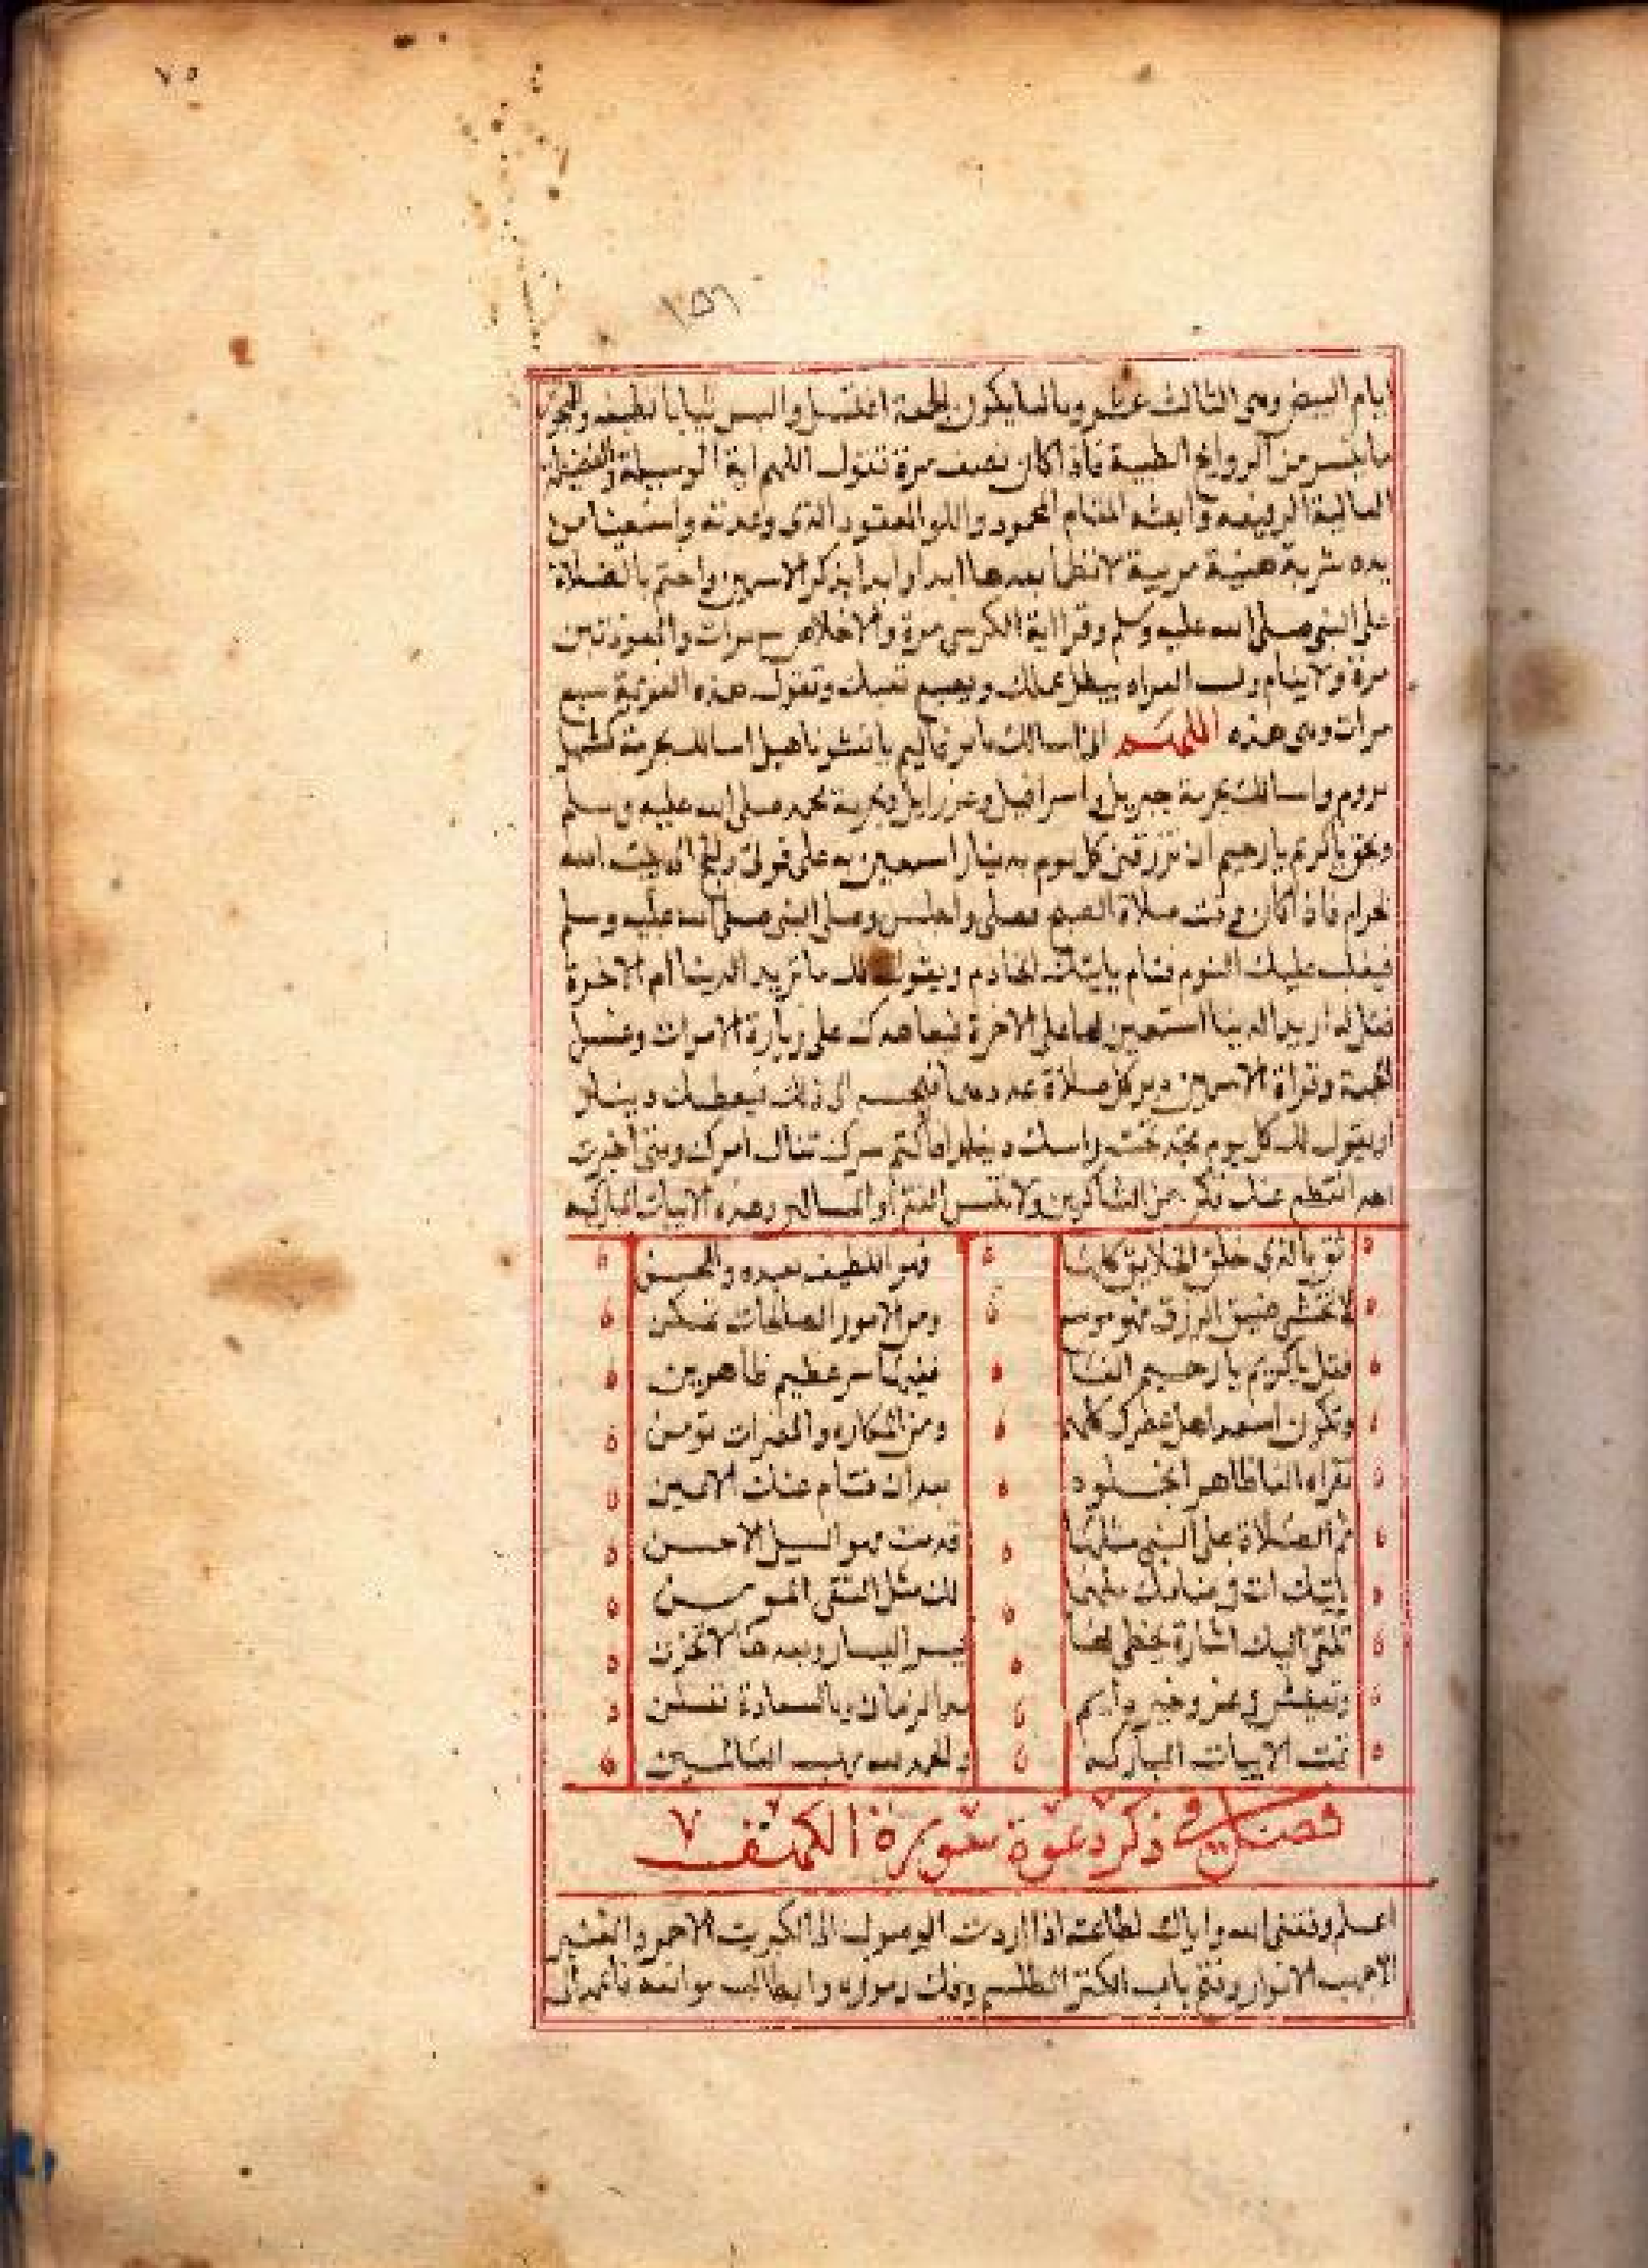 ٧٥
١٥٦
ايام البيض وهى الثالث عشر وما يكون الجمعة اغتسل والبس ثيابا نظيفه والبخور
ما تيسر من الروايح الطيبة فاذا كان نصف مرة تقول اللهم اته الوسيطة والفضيلة
العالية الرفيعه وابعثه المقام المحمود واللو المعقود الذى وعدته واسقينا من
يده شربة هنيئة مريية لا نظما بعدها ابدا وابدا بذكر الاسمين واختم بالصلاة
على النبى صلى الله عليه وسلم وقرا اية الكرسى مرة والاخلاص مرات والمعوذتين
مرة ولا ينام المراد يبطل عملك ويضيع تعبك وتقول هذه العزيمة سبع
مرات وهى هذه اللهم انى اسالك يا اسالك بحرمة
واسالك بحرمة جبريل واسرافيل وعزرايل وبحرمة محمد صلى الله عليه وسلم
وبحق ياكريم يارحيم ان ترزقنى كل يوم بدينار استعين به على قوتى الى بيت الله
الحرام فاذا كان وقت صلاة الصبح فصلى واجلس وصلى النبى صلى الله عليه وسلم
فيغلب عليك النوم فنام ياتيك الخادم ويقول لك ما تريد الدنيا ام الاخرة
فقل له اريد الدنيا استعين بها على الاخرة فيعاهدك على زيارة الاموات وغسل
الجمعة وقراة الاسمين دبر كل صلاة عددهما الى ذلك فيعطيك دينار
او يقول لك كل يوم تجد تحت راسك دينارا فاكتم سرك تنال امرك ومتى اخبرت
احد انقطع عنك فكن من الشاكرين ولا تنسى الفقرا والمساكين وهذه الابيات المباركه
ثق بالذى خلق الخلايق كلها فهو اللطيف بعبده والمحسن
لا تخشى ضيق الرزق فهو موسع ومن الامور الصعبات تمكن
فقل ياكريم يا رحيم ففيهما سر عظيم ظاهر
وتكون اسعد اهل عصرك كلهم ومن المكاره والمضرات تومن
تقراه الفا ظاهرا بعد ان تنام عنك الاعين
ثم الصلاة على النبى مثلها فهو السبيل الاحسن
ياتيك ات فى منامك لك مثل التقى المومن
تلقى اليك اشارة تحظى بها اليسار وبعدها لا تحزن
وتعيش فى عز وخير دايم الزمان وبالسعادة
تمت الابيات المباركه والحمد لله رب العالمين
فصل فى ذكر دعوة سورة الكهف
اعلم وفقنى الله واياك لطاعته اذا اردت الوصول الى الكبريت الاحمر والعنبر
الاشهب الانوار وفتح باب الكنز المطلسم وفك رموزه وابطال موانعه فاعمد الى